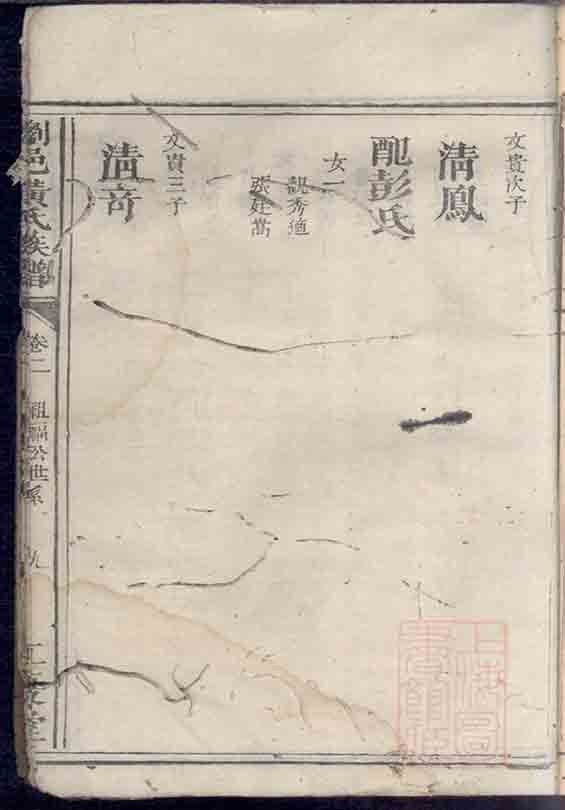 文貴次子
清鳳
配彭氏
女一
說秀適
張廷嵩
文貴三子
清奇
瀏邑黃氏族譜
卷二
祖隔公世系
九
江夏堂
上海圖書館藏